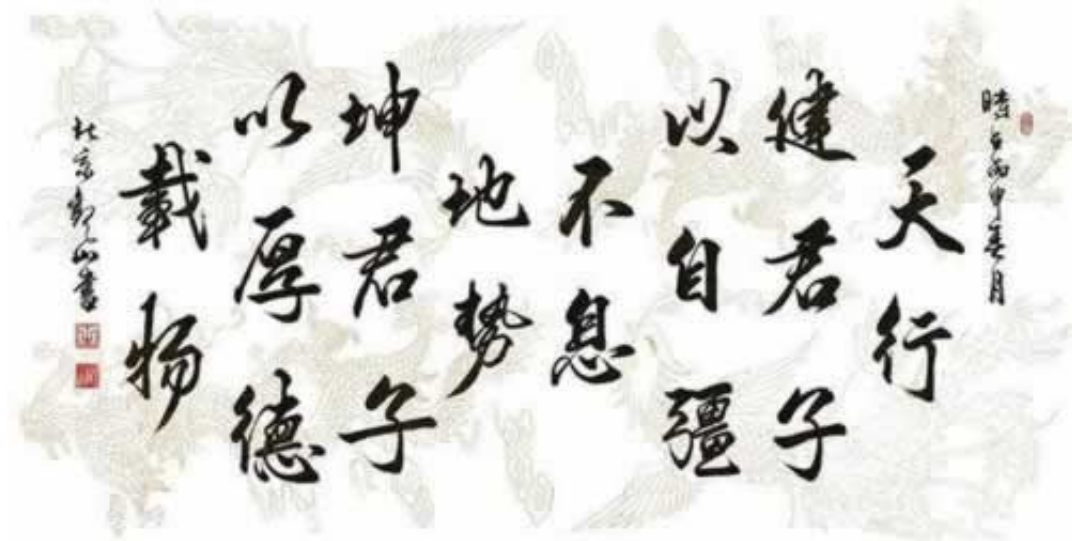 時在丙申春月
天行
健君子
以自彊
不息
地势
坤君子
以厚德
載物